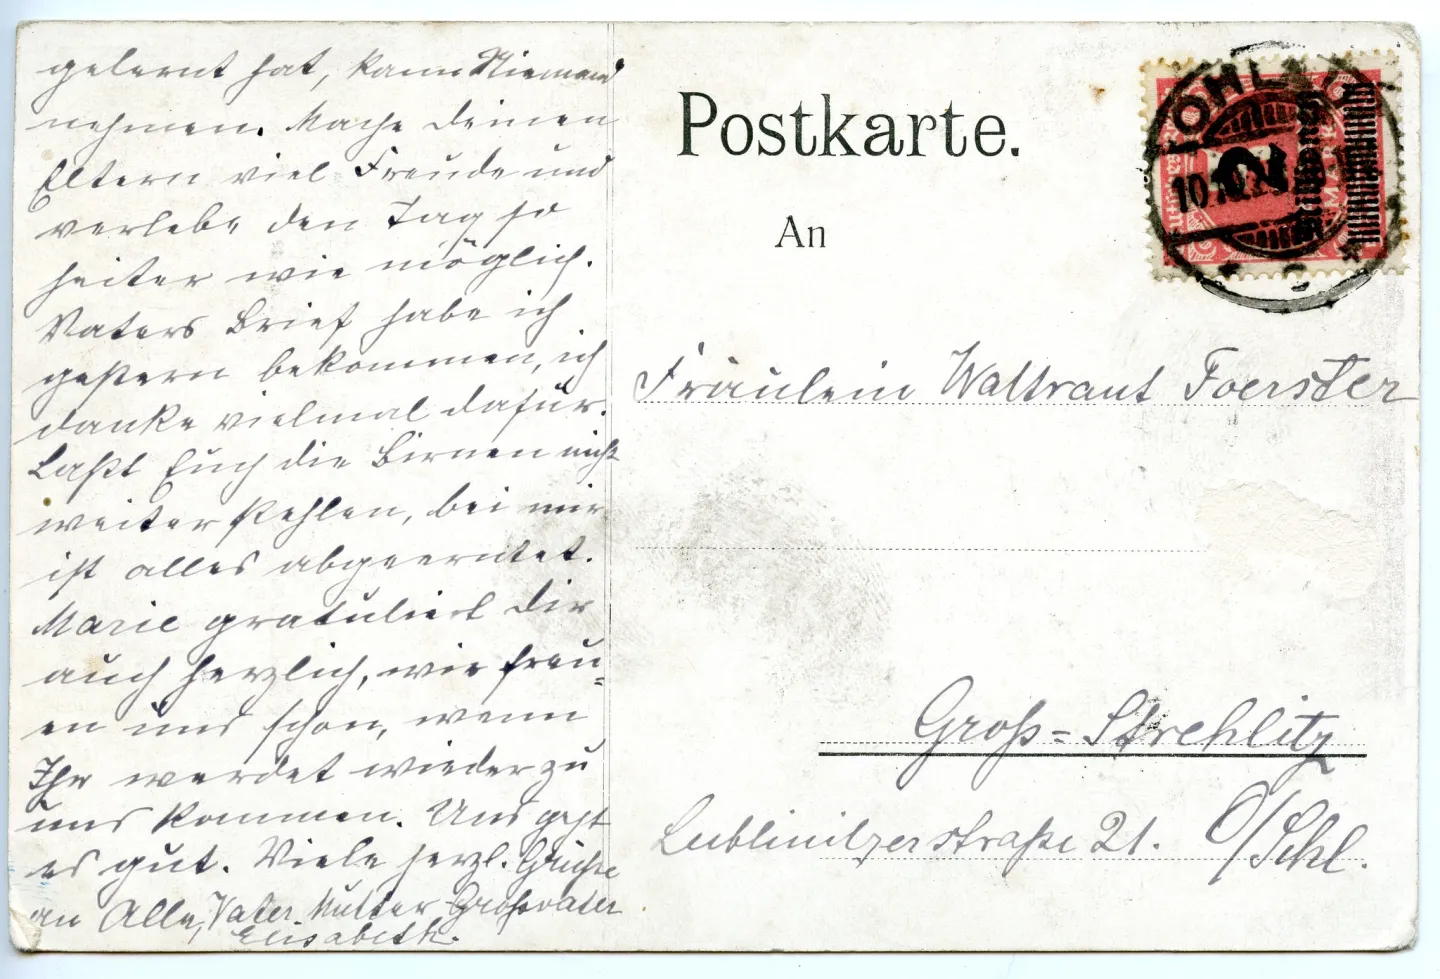 gelernt hat, kann Niemand
nehmen. Mache Deinen
Eltern viel Freude und
verlebe den Tag so
heiter wie möglich.
Vaters Brief habe ich
gestern bekommen, ich
danke vielmal dafür.
Laßt Euch die Birnen nicht
weiter stehlen, bei mir
ist alles abgeerntet.
Marie gratuliert Dir
auch herzlich, wir freu=
en uns schon, wenn
Ihr werdet wieder zu
uns kommen. Uns geht
es gut. Viele herzl. Grüße
an Alle, Vater Mutter Großvater
Elisabeth.
Postkarte.
An
Fräulein Waltraut Foerster
Groß=Strehlitz
Lublinitzerstraße 21. O/Schl.
OHLAU
10.10.
2
MARK